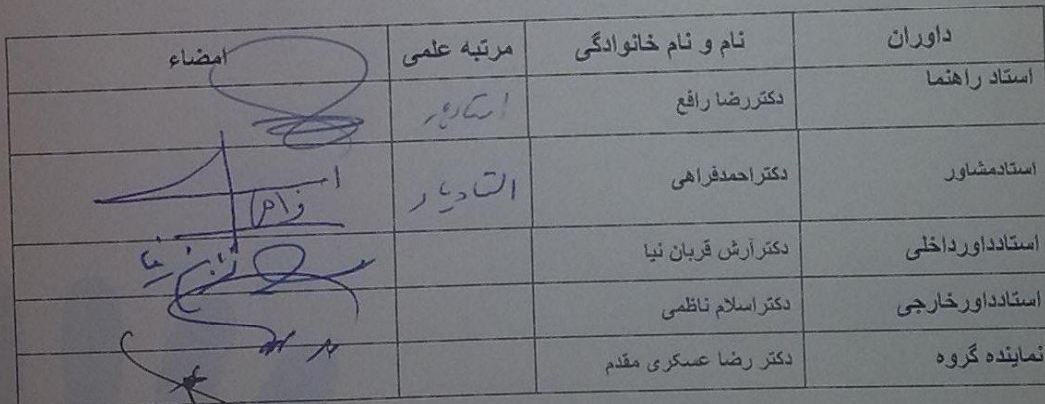 داوران نام و نام خانوادگی مرتبه علمی امضاء
استاد راهنما دکتررضا رافع استادیار
استادمشاور دکتراحمدفراهی استادیار
استادداورداخلی دکترآرش قربان نیا
استادداورخارجی دکتراسلام ناظمی
نماینده گروه دکتر رضا عسکری مقدم